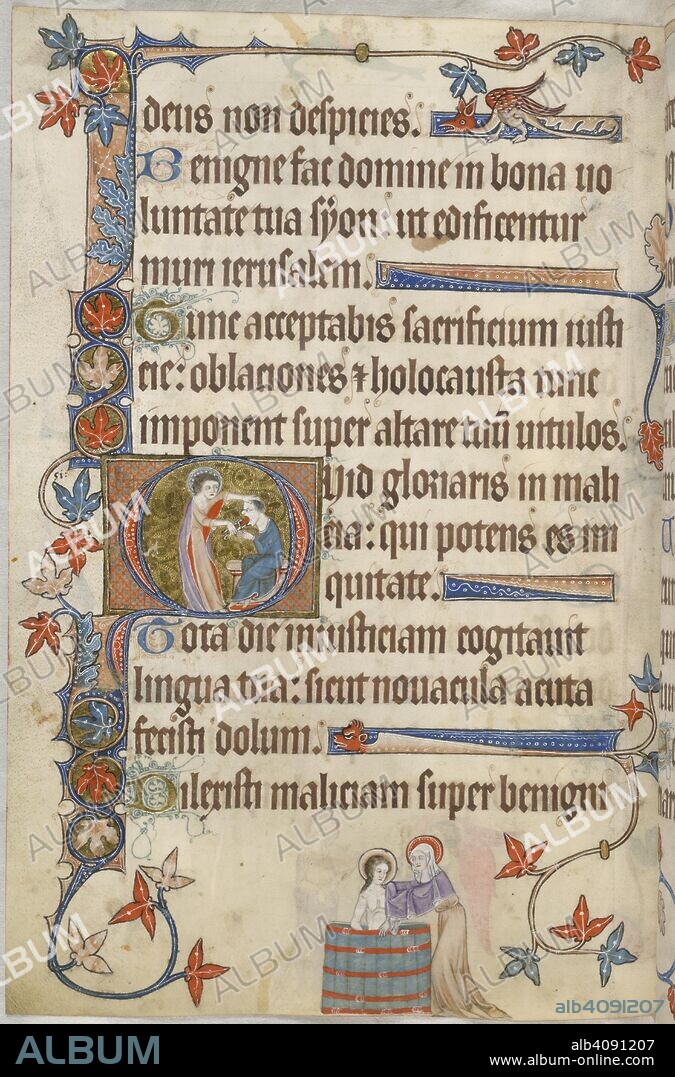 deus non despicies.
Benigne fac domine in bona uo
luntate tua syon: ut edificentur
muri ierusalem.
Tunc acceptabis sacrificium iusti
cie: oblaciones ⁊ holocausta tunc
imponent super altare tuū uitulos.
Quid gloriaris in mali
cia: qui potens es in
quitate.
Tota die iniusticiam cogitauit
lingua tua: sicut nouacula acuta
fecisti dolum.
Dilexisti maliciam super benigni
alb4091207
ALBUM
alb4091207
www.album-online.com